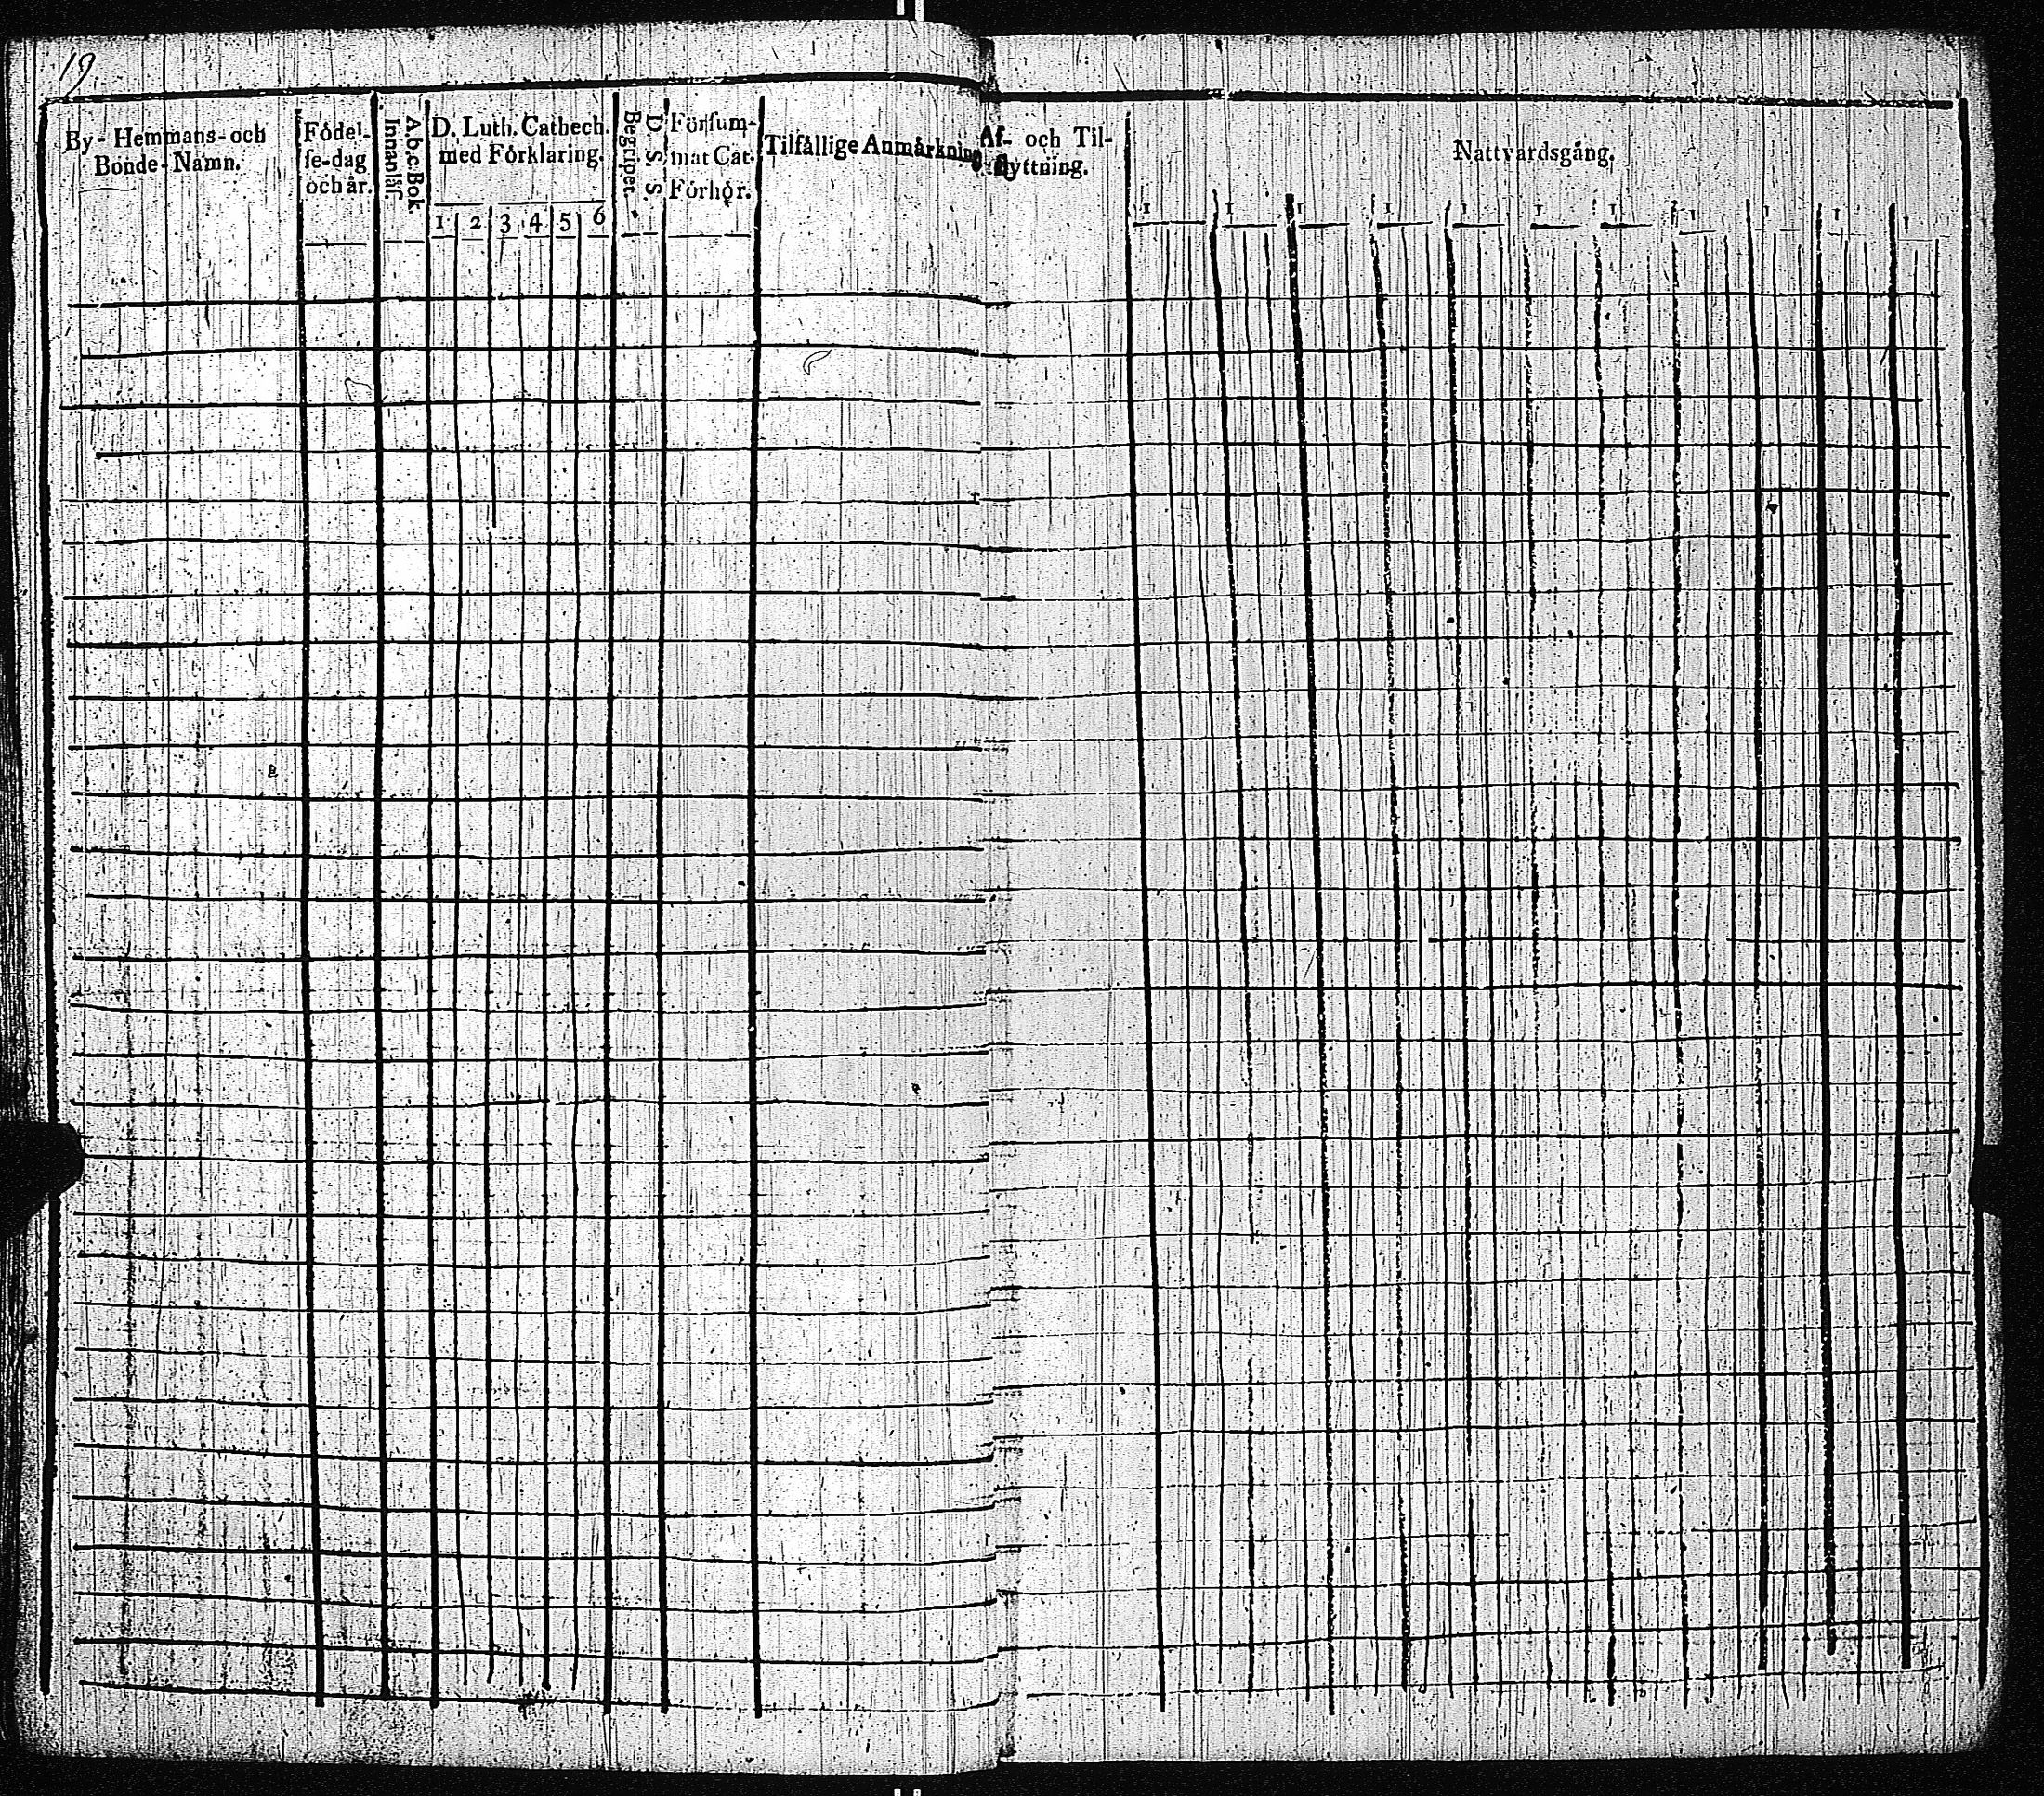 19
By- Hemmans- och
Bonde-Namn.
Födel-
se-dag
och år.
A.b.c.Bok.
Innanläs.
D. Luth. Cathech.
med Förklaring.
1 2 3 4 5 6
D. S. S.
Begrepet.
Försum-
mat Cat.
Förhör.
Tilfällige Anmärkning
Af- och Til-
flyttning.
Nattvardsgång.
1 1 1 1 1 1 1 1 1 1 1